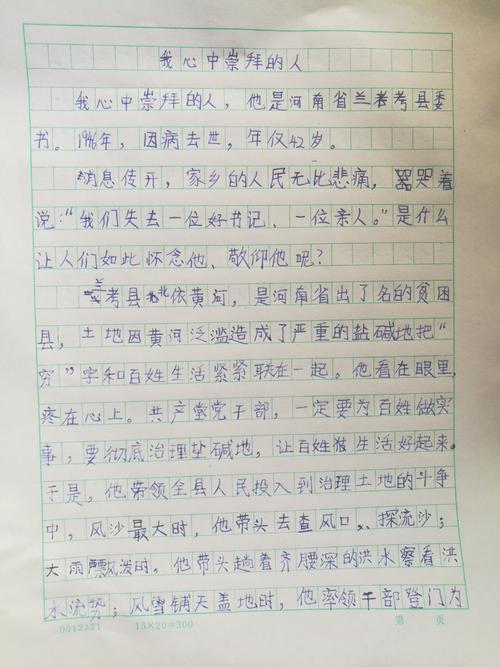 我心中崇拜的人
我心中崇拜的人，他是河南省兰考县委
书。1966年，因病去世，年仅42岁。
消息传开，家乡的人民无比悲痛，哭着
说：“我们失去一位好书记、一位亲人。”是什么
让人们如此怀念他、敬仰他呢？
兰考县北依黄河，是河南省出了名的贫困
县，土地因黄河泛滥造成了严重的盐碱地把“
穷”字和百姓生活紧紧联在一起。他看在眼里，
疼在心上。共产党干部，一定要为百姓做实
事，要彻底治理盐碱地，让百姓生活好起来。
于是，他带领全县人民投入到治理土地的斗争
中，风沙最大时，他带头去查风口、探流沙；
大雨瓢泼时，他带头趟着齐腰深的洪水察看洪
水流势；风雪铺天盖地时，他率领干部登门为
0012321 15×20=300 第 页